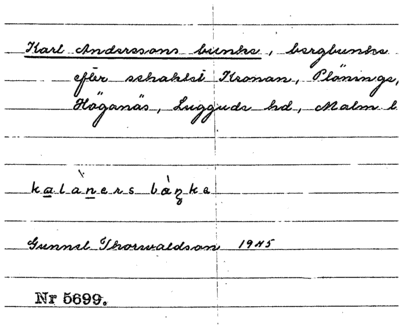 Karl Anderssons bunke, bergbunke
efter schaktet Kronan, Plönings,
Höganäs, Luggude hd, Malm l
kalàners bàŋka
Gunnel Thorwaldson 1945
Nr 5699.